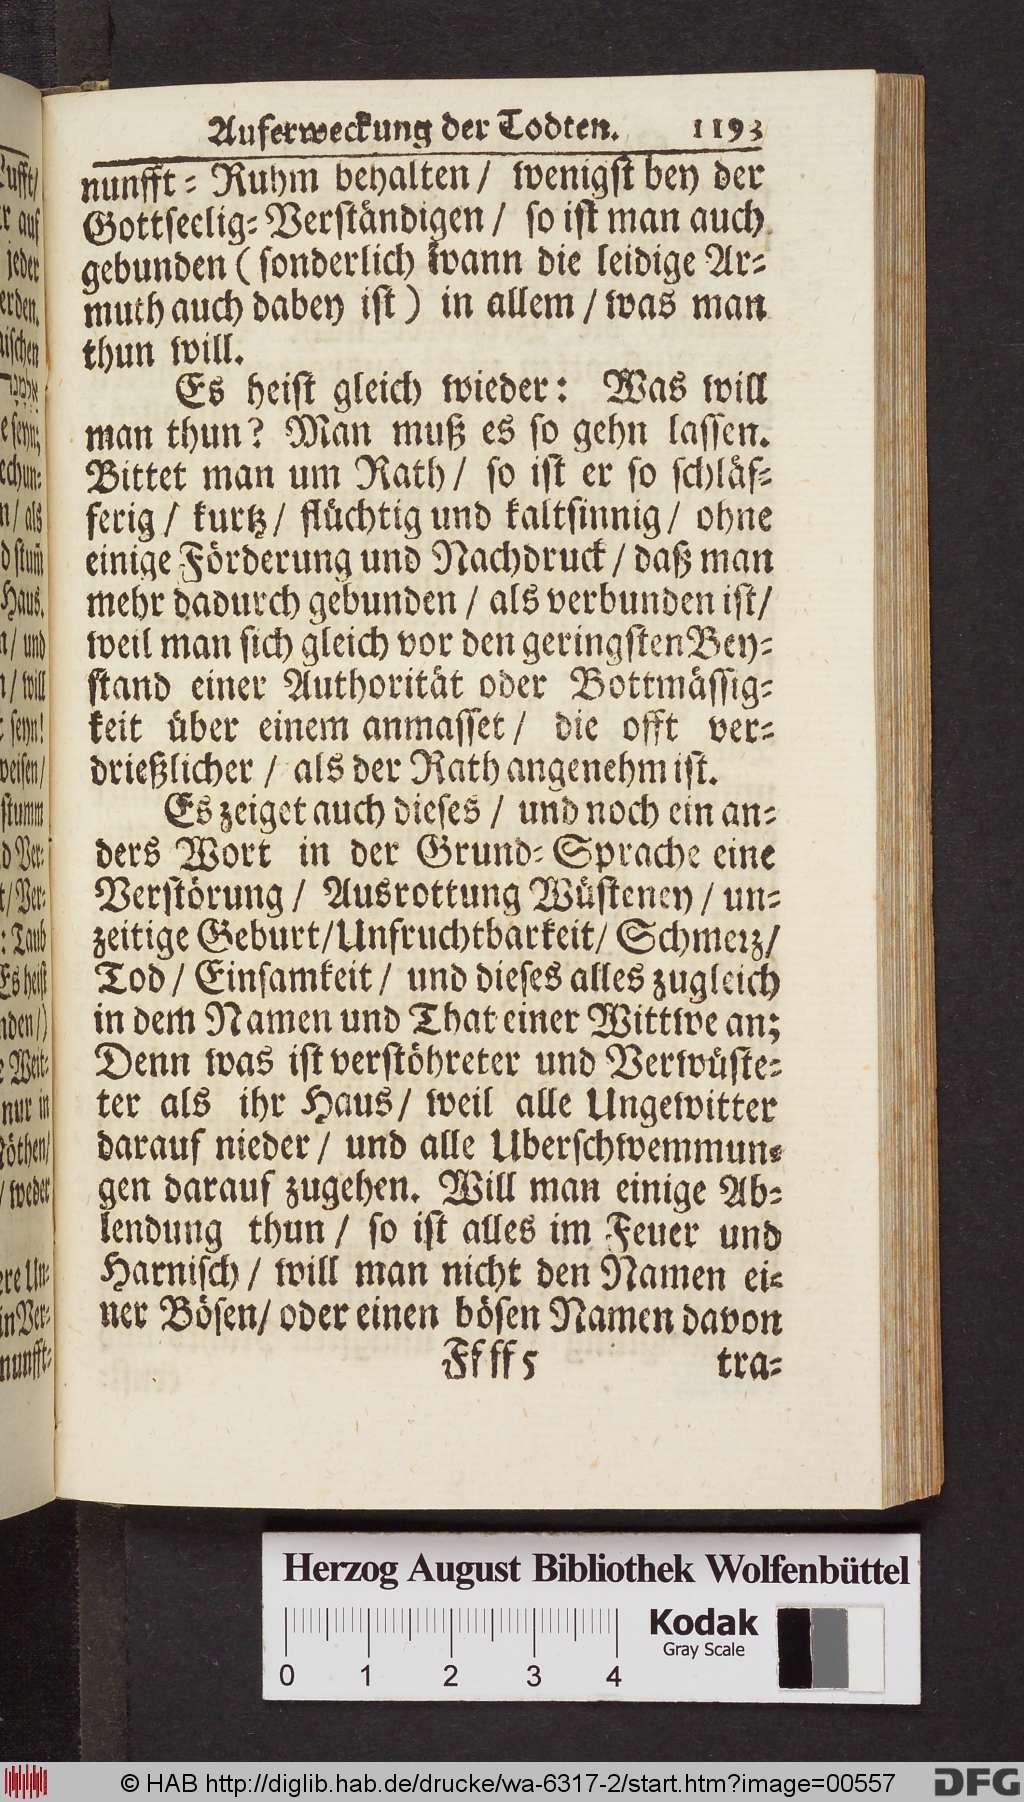 Auferweckung der Todten. 1193
nunfft-Ruhm behalten / wenigst bey der
Gottseelig-Verständigen / so ist man auch
gebunden (sonderlich wann die leidige Ar-
muth auch dabey ist) in allem / was man
thun will.
Es heist gleich wieder: Was will
man thun? Man muß es so gehn lassen.
Bittet man um Rath / so ist er so schläf-
ferig / kurtz / flüchtig und kaltsinnig / ohne
einige Förderung und Nachdruck / daß man
mehr dadurch gebunden / als verbunden ist /
weil man sich gleich vor den geringsten Bey-
stand einer Authorität oder Bottmässig-
keit über einem anmasset / die offt ver-
drießlicher / als der Rath angenehm ist.
Es zeiget auch dieses / und noch ein an-
ders Wort in der Grund-Sprache eine
Verstörung / Ausrottung Wüsteney / un-
zeitige Geburt / Unfruchtbarkeit / Schmerz /
Tod / Einsamkeit / und dieses alles zugleich
in dem Namen und That einer Wittwe an;
Denn was ist verstöhreter und Verwüste-
ter als ihr Haus / weil alle Ungewitter
darauf nieder / und alle Uberschwemmun-
gen darauf zugehen. Will man einige Ab-
lendung thun / so ist alles im Feuer und
Harnisch / will man nicht den Namen ei-
ner Bösen / oder einen bösen Namen davon
Ffff 5 tra-
Lufft /
er auf
jeder
erden.
e seyn;
n / als
d stum̃
Haus.
n / und
n / will
seyn!
weisen /
stumm
d Ver-
t / Ver-
: Taub
Es heist
nden /)
Weit-
nur in
Nöthen /
/ weder
ere Un-
in Ver-
nunfft-
Herzog August Bibliothek Wolfenbüttel
Kodak
Gray Scale
0 1 2 3 4
© HAB http://diglib.hab.de/drucke/wa-6317-2/start.htm?image=00557
DFG